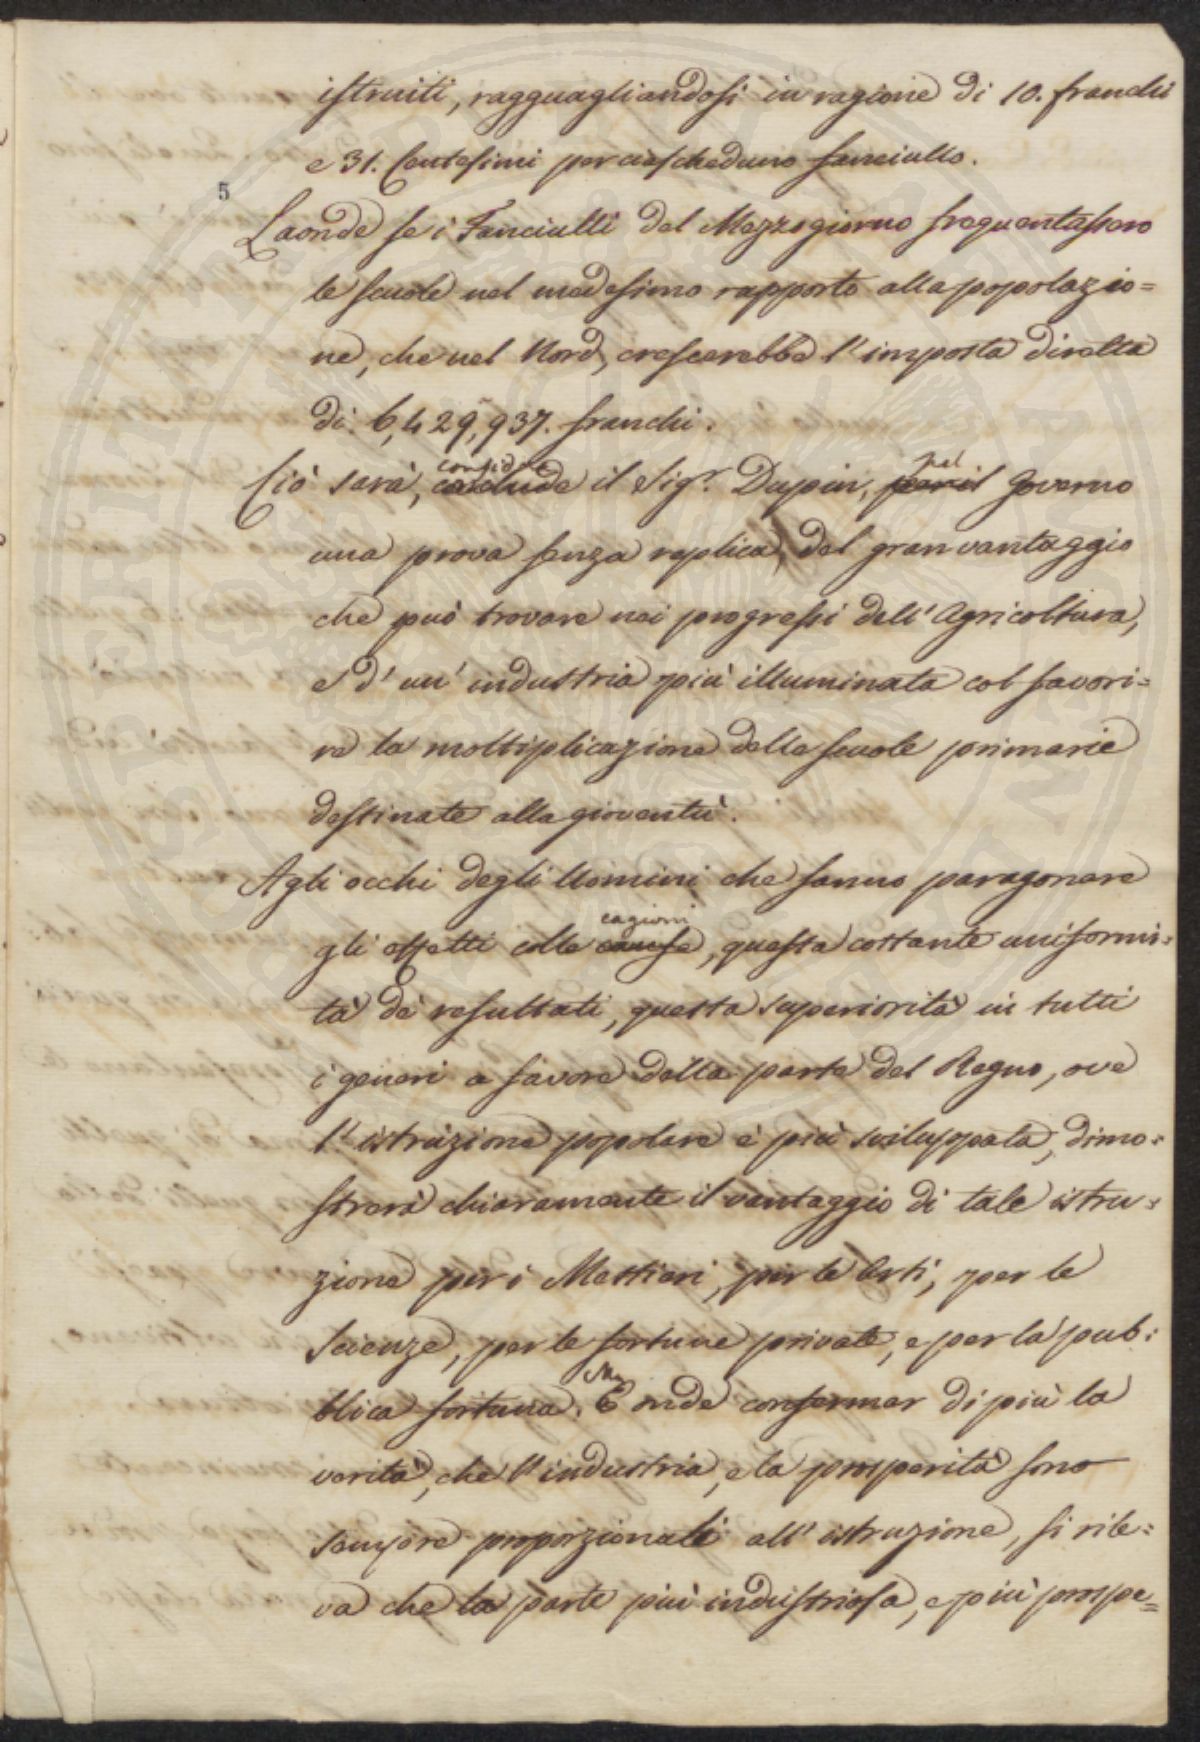 istruiti, ragguagliandosi in ragione di 10. franchi
e 31. Centesimi per ciascheduno fanciullo.
5
Laonde se i Fanciulli del Mezzogiorno frequentassero
le scuole nel medesimo rapporto alla popolazio=
ne, che nel Nord, crescerebbe l'imposta diretta
di 6,429,937. franchi.
Ciò sarà, conclude il Sigr. Dupin, per il Governo
nel
una prova senza replica, del gran vantaggio
che può trovare nei progressi dell'Agricoltura,
e d'un'industria più illuminata col favori=
re la moltiplicazione delle scuole primarie
destinate alla gioventù.
Agli occhi degli Uomini che sanno paragonare
cagioni
gli effetti colle cause, questa costante uniformi=
tà de' resultati, questa superiorità in tutti
i generi a favore della parte del Regno, ove
l'istruzione popolare è più sviluppata, dimo=
strerà chiaramente il vantaggio di tale istru=
zione per i Mestieri, per le Arti, per le
Scienze, per le fortune private, e per la pub=
blica fortuna. E onde confermar di più la
Ma
verità, che l'industria, e la prosperità sono
sempre proporzionali all'istruzione, si rile=
va che la parte più industriosa, e più prospe=